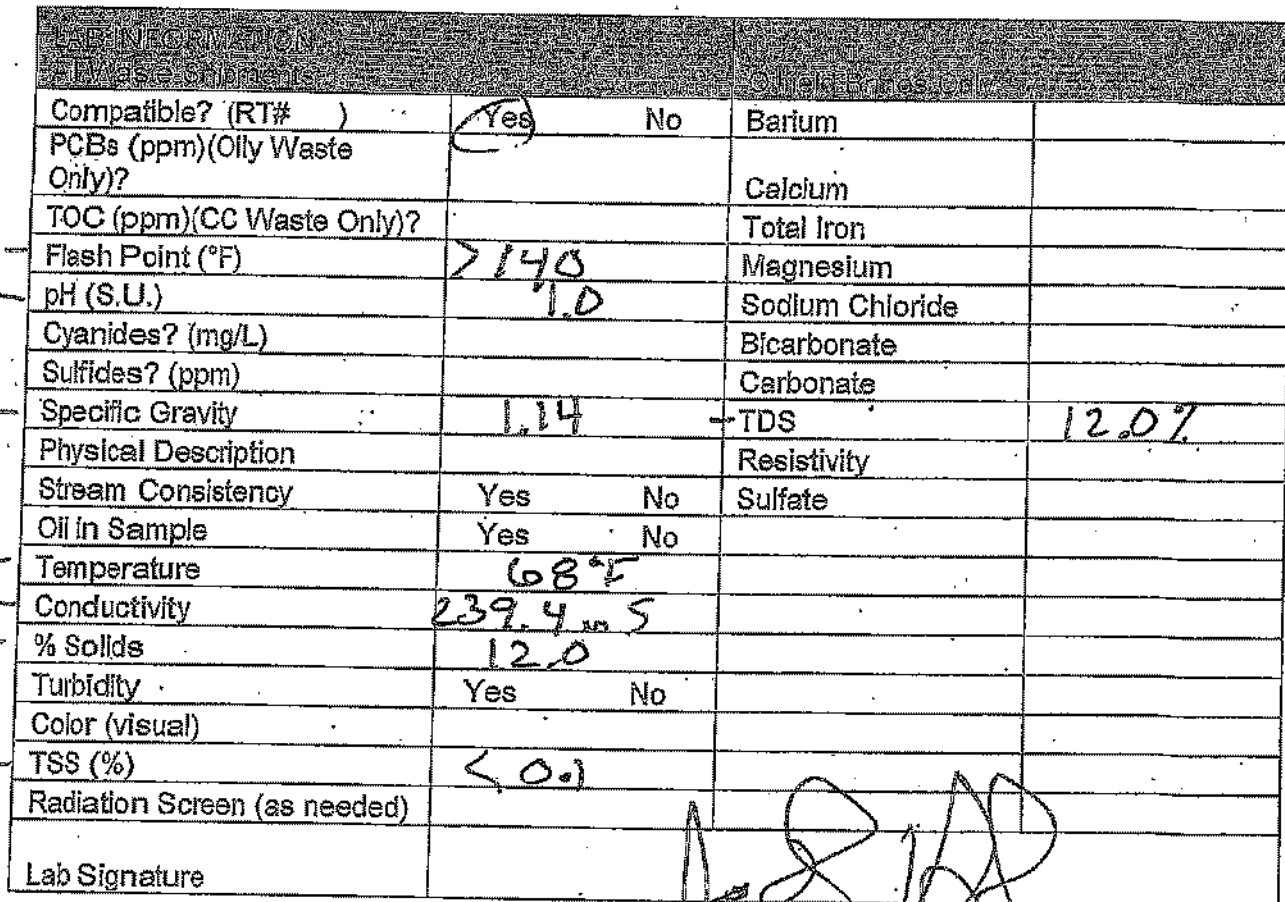 LAB INFORMATION
All Waste Shipments Oilfield Brines Only
Compatible? (RT# ) Yes No Barium
PCBs (ppm)(Oily Waste
Only)? Calcium
TOC (ppm)(CC Waste Only)? Total Iron
Flash Point (°F) >140 Magnesium
pH (S.U.) 1.0 Sodium Chloride
Cyanides? (mg/L) Bicarbonate
Sulfides? (ppm) Carbonate
Specific Gravity 1.14 TDS 12.0%
Physical Description Resistivity
Stream Consistency Yes No Sulfate
Oil in Sample Yes No
Temperature 68°F
Conductivity 239.4 mS
% Solids 12.0
Turbidity Yes No
Color (visual)
TSS (%) <0.1
Radiation Screen (as needed)
Lab Signature